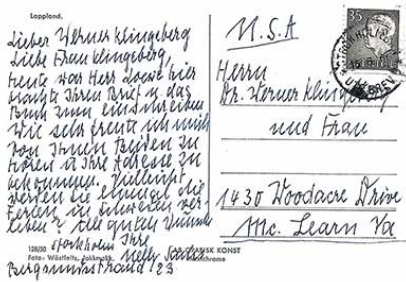 Lappland.
Lieber Werner Klingeberg
Liebe Frau Klingeberg,
heute war Herr Loewe hier
brachte Ihren Brief u das
Buch zum einschreiben
Wie sehr freute ich mich
von Ihnen Beiden zu
hören u Ihre Adresse zu
bekommen. Vielleicht
werden Sie einmal die
Ferien in Schweden ver-
leben? Alle guten Wünsche
Stockholm Ihre
Nelly Sachs
Bergsundsstrand 23
128/50
Foto: Wästfelts, Jokkmokk.
GRAFISK KONST
U.S.A
35
Herrn
Dr. Werner Klingeberg
und Frau
1430 Woodacre Drive
Mc. Learn Va